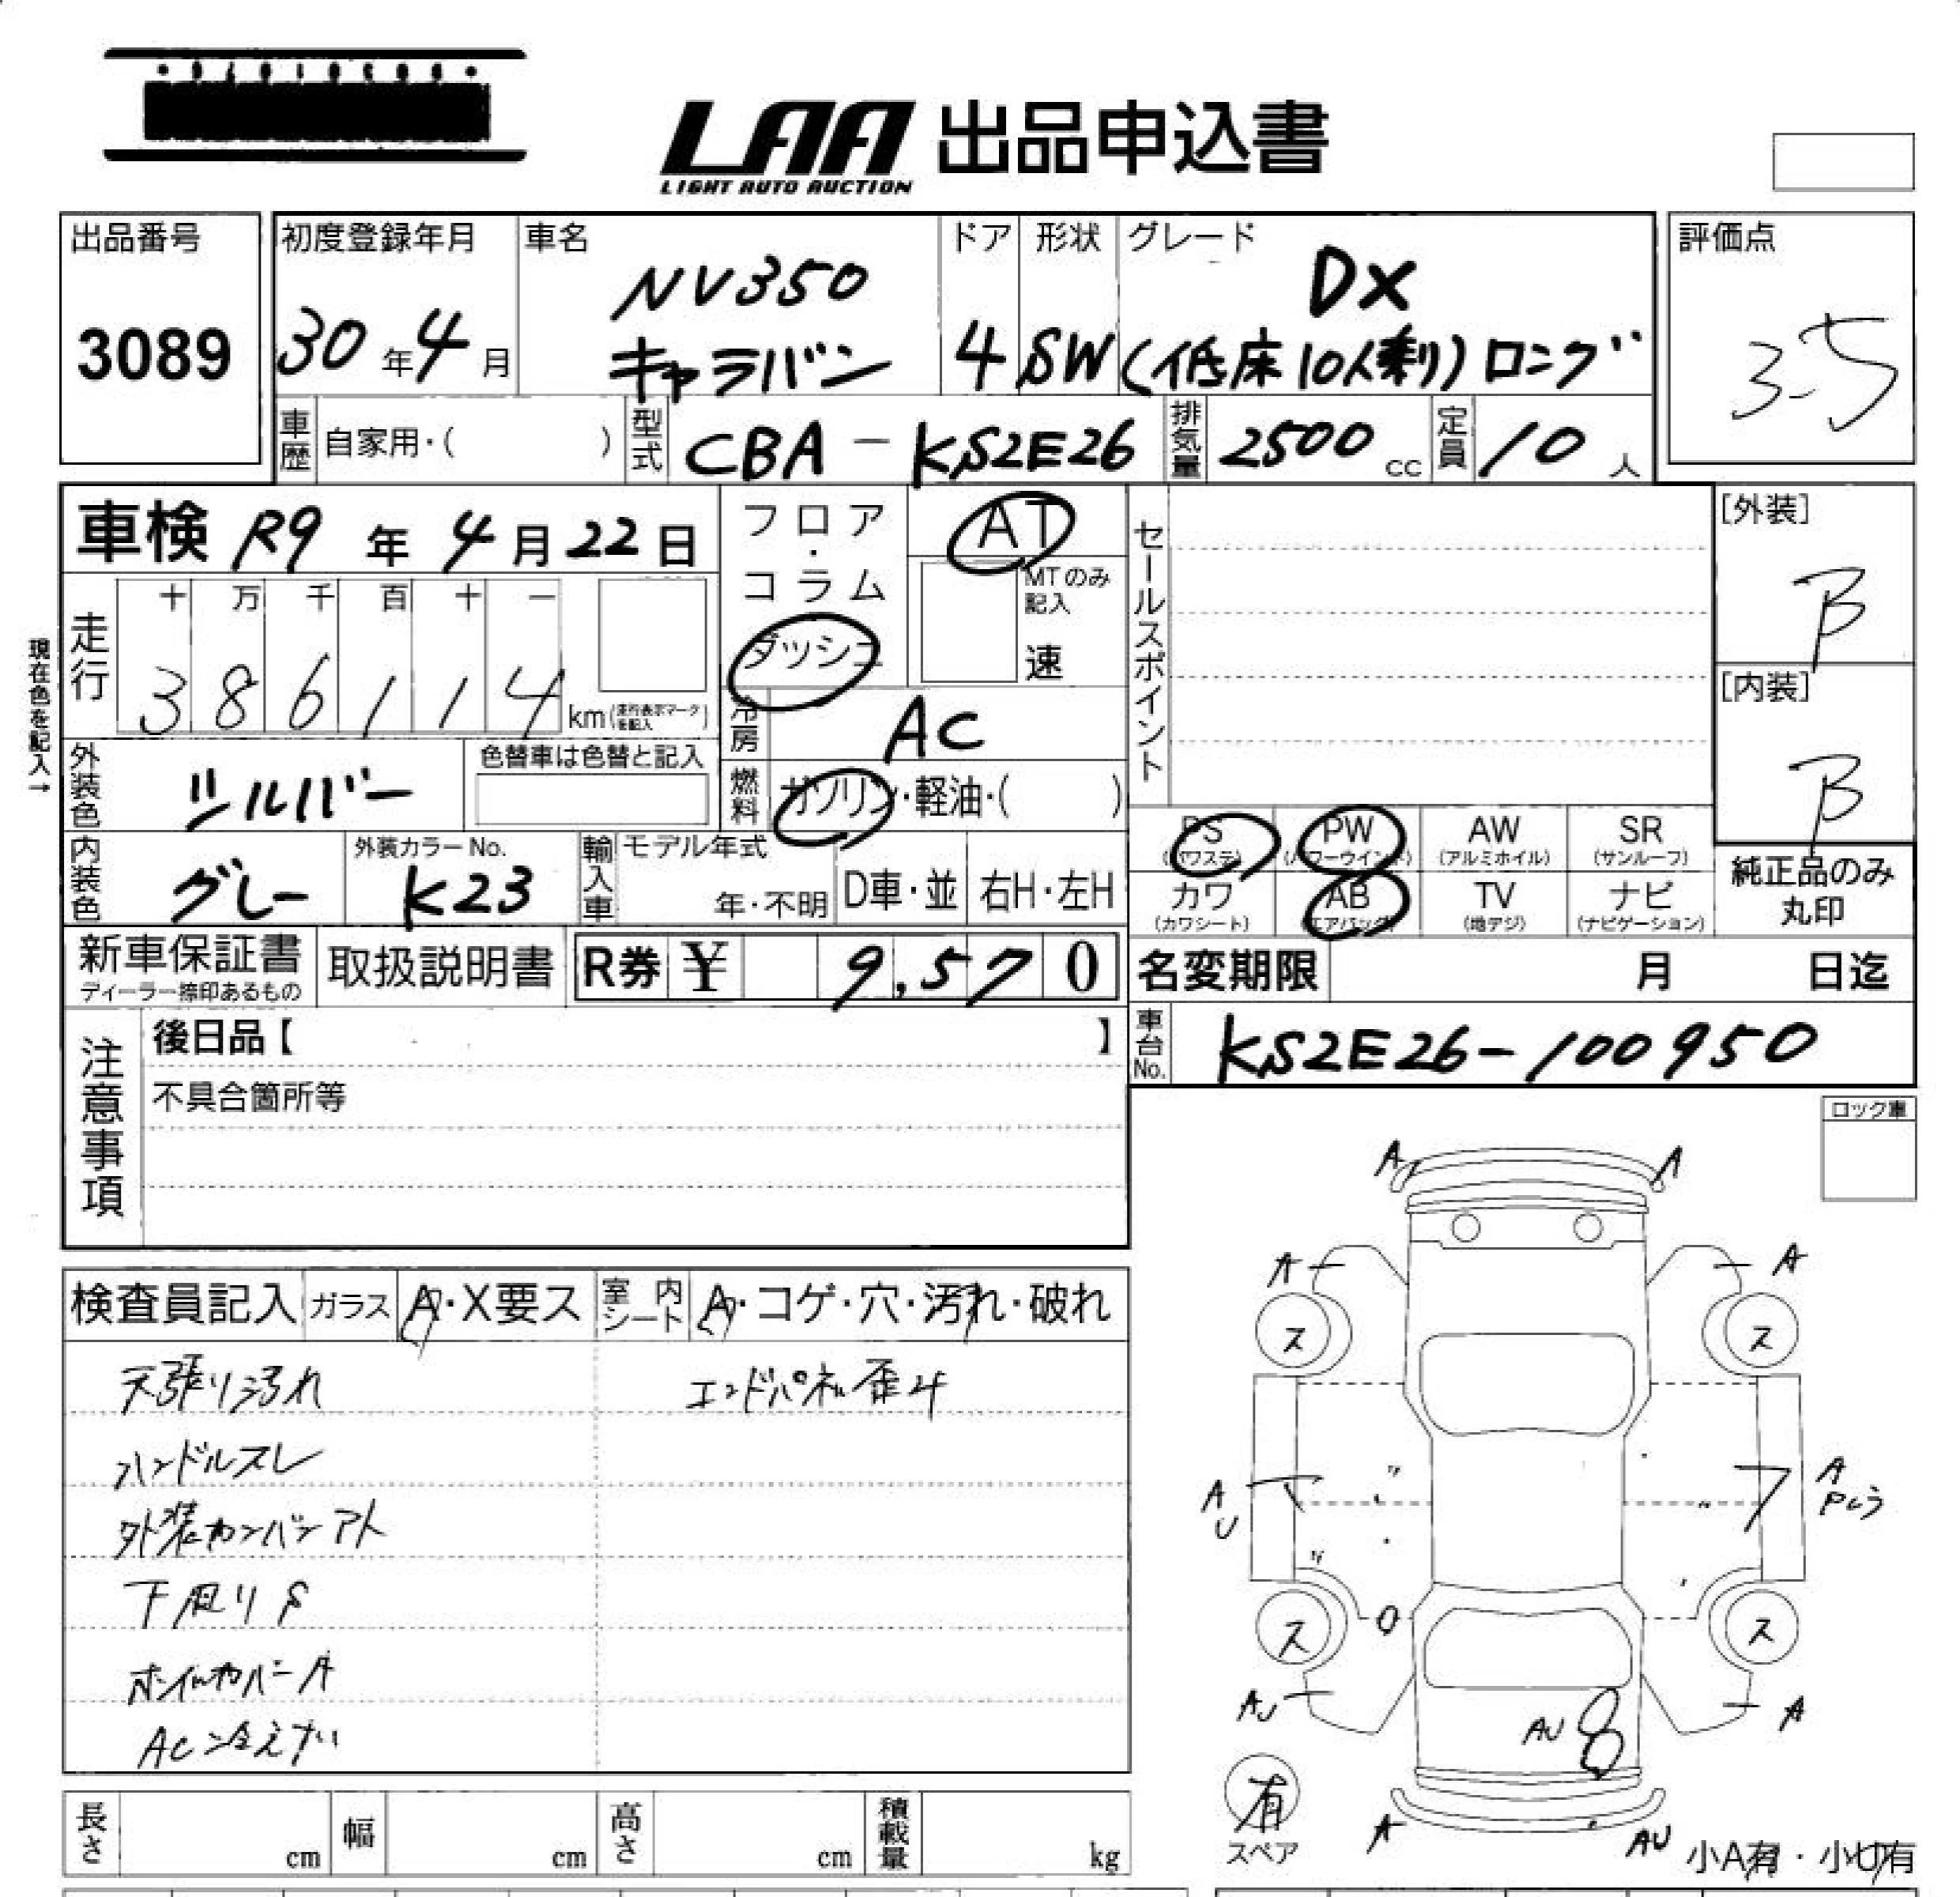 LAA 出品申込書
LIGHT AUTO AUCTION
出品番号
3089
初度登録年月
30年4月
車名
NV350
キャラバン
ドア
4
形状
SW
グレード
DX
(低床10人剰)ロング
評価点
3.5
車歴 自家用・( )
型式 CBA-KS2E26
排気量 2500 cc
定員 10 人
車検 R9 年 4 月 22 日
フロア・コラム
ダッシュ
AT
MTのみ記入
速
セールスポイント
[外装]
B
[内装]
B
現在色を記入→
走行
十 万 千 百 十 一
3 8 6 1 1 4 km(走行表示マークを記入)
冷房 AC
燃料 ガソリン・軽油・( )
外装色 シルバー
色替車は色替と記入
内装色 グレー
外装カラーNo.
K23
輸入車 モデル年式
年・不明 D車・並 右H・左H
PS (パワステ)
PW (パワーウインド)
AW (アルミホイル)
SR (サンルーフ)
カワ (カワシート)
AB (エアバック)
TV (地デジ)
ナビ (ナビゲーション)
純正品のみ
丸印
新車保証書
ディーラー捺印あるもの
取扱説明書
R券 ¥ 9,570
名変期限 月 日迄
車台No. KS2E26-100950
注意事項
後日品【 】
不具合箇所等
ロック車
検査員記入 ガラス A・X要ス 室内シート A・コゲ・穴・汚れ・破れ
天張り汚れ
エンドパネル歪み
ハンドルスレ
外装カンバンアト
下廻りS
ホイルカバーA
AC冷えない
A A
A A
ス ス
A
U
A
ス ス
AU A
AU
有
スペア
A AU
小A有・小U有
長さ cm 幅 cm 高さ cm 積載量 kg